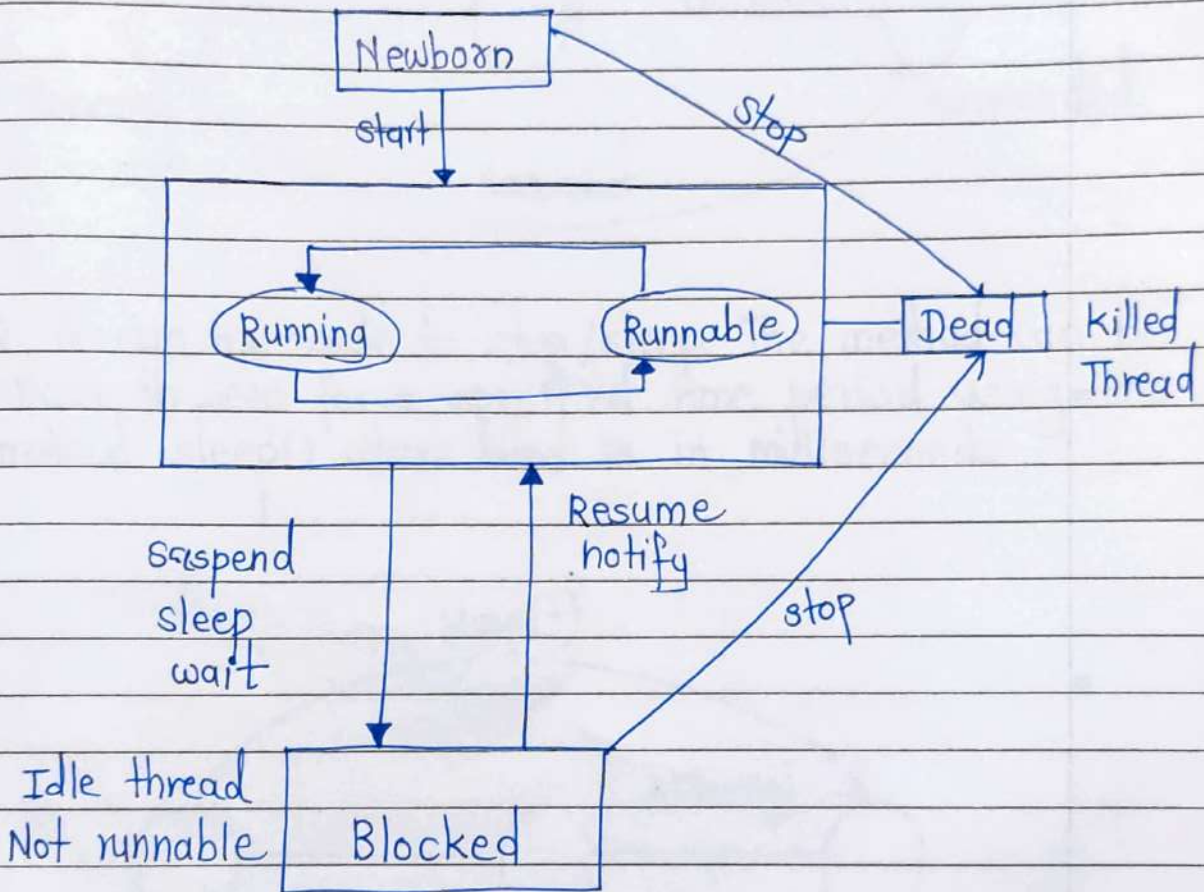 Newborn
start
stop
Running
Runnable
Dead
Killed
Thread
suspend
sleep
wait
Resume
notify
stop
Idle thread
Not runnable
Blocked